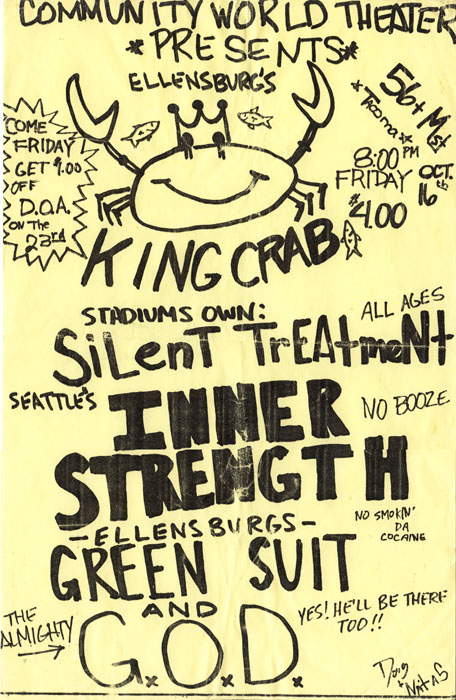 COMMUNITY WORLD THEATER
*PRESENTS*
ELLENSBURG'S
COME
FRIDAY
GET 1.00
OFF
D.O.A.
ON THE
23rd
56+ M st
*Tacoma*
8:00 PM
FRIDAY OCT. 16th
$4.00
KING CRAB
STADIUMS OWN:
ALL AGES
SiLenT TrEAtmeNt
SEATTLE'S
INNER
STRENGTH
NO BOOZE
NO SMOKIN'
DA
COCAINE
-ELLENSBURGS-
GREEN SUIT
AND
THE
ALMIGHTY
G.O.D.
YES! HE'LL BE THERE
TOO!!